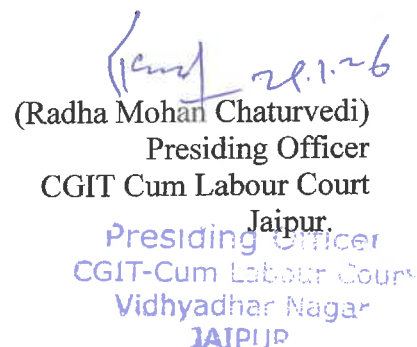 29.1.26
(Radha Mohan Chaturvedi)
Presiding Officer
CGIT Cum Labour Court
Jaipur.
Presiding Officer
CGIT-Cum Labour Court
Vidhyadhar Nagar
JAIPUR